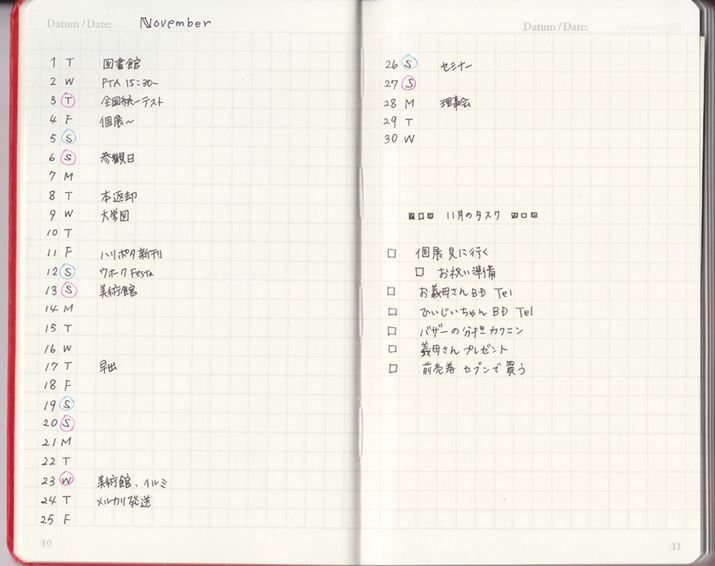 Datum / Date: November
1 T 図書館
2 W PTA 15:30〜
3 T 全国統一テスト
4 F 個展〜
5 S
6 S 参観日
7 M
8 T 本返却
9 W 大学図
10 T
11 F ハリポタ新刊
12 S ウオーク Festa
13 S 美術館
14 M
15 T
16 W
17 T 早出
18 F
19 S
20 S
21 M
22 T
23 W 美術館、イルミ
24 T メルカリ発送
25 F
10
Datum / Date:
26 S セミナー
27 S
28 M 理事会
29 T
30 W
11月のタスク
□ 個展 見に行く
□ お祝い準備
□ お義母さん BD Tel
□ ひいじいちゃん BD Tel
□ バザーの分担 カクニン
□ 義母さん プレゼント
□ 前売券 セブンで買う
11